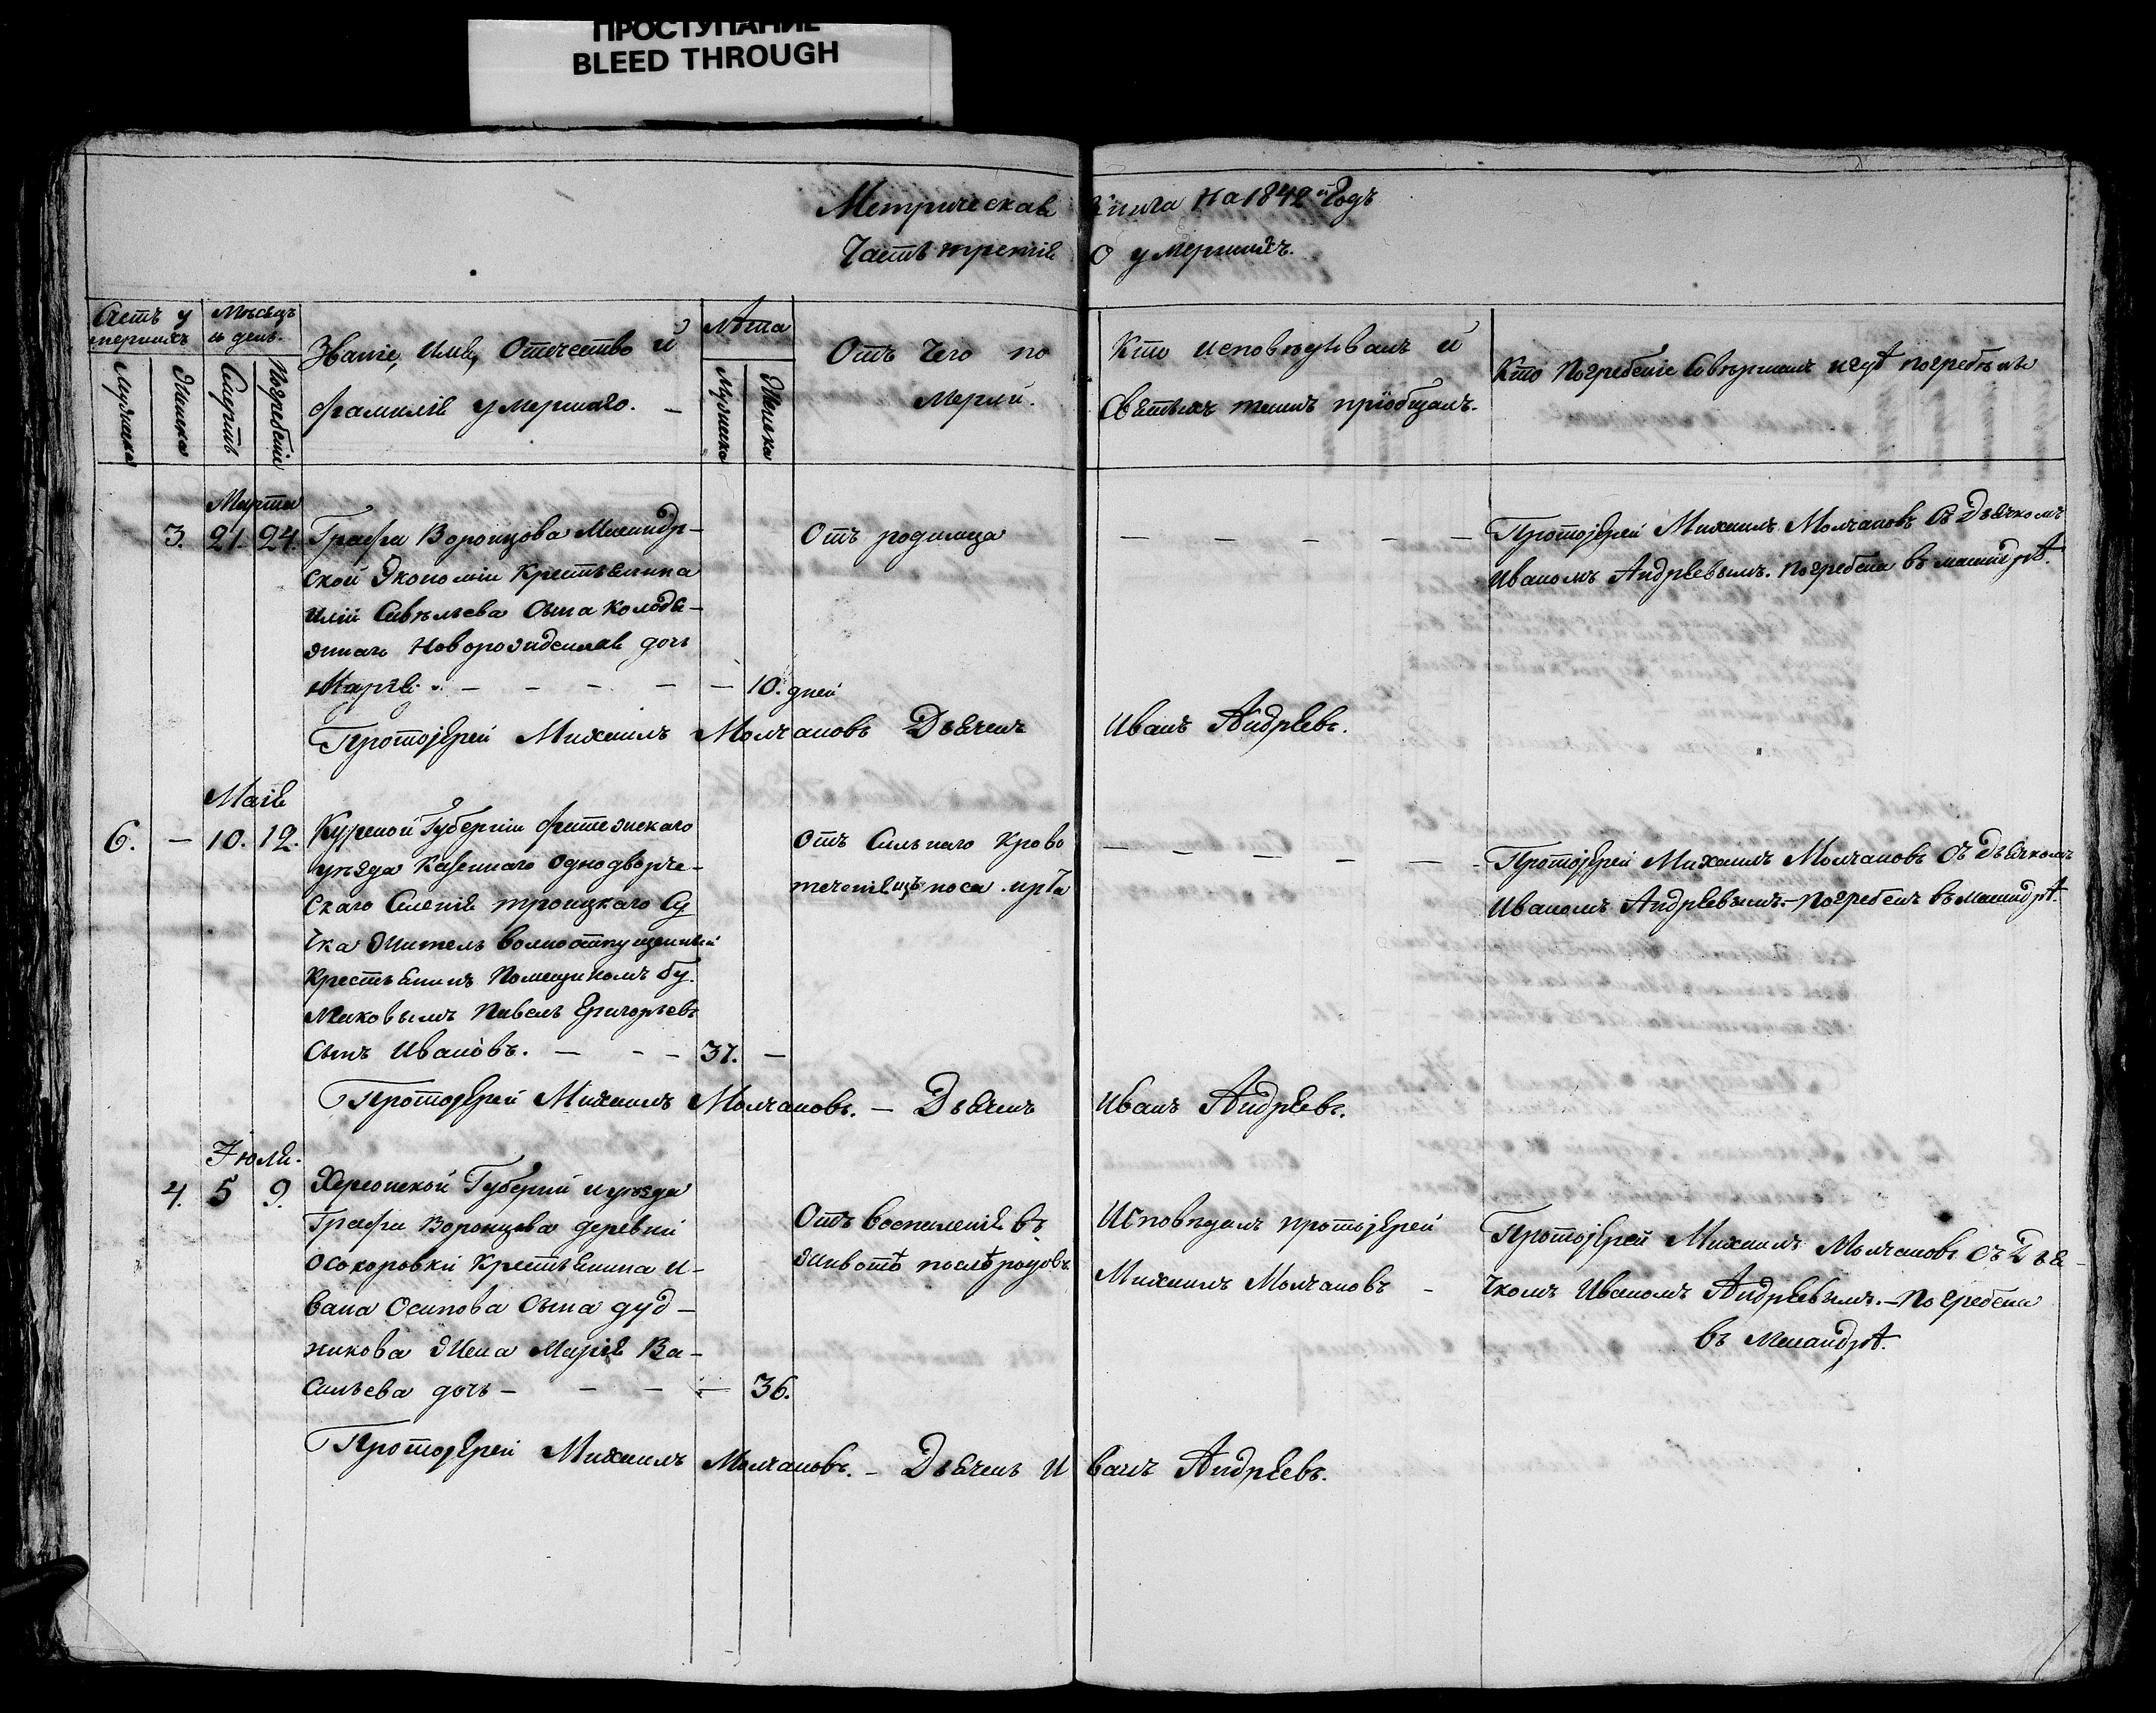 ПРОСТУПАНИЕ
BLEED THROUGH
Метрическая Книга На 1842й Годъ
Часть третія О умершихъ.
Счетъ у
мершихъ
Мѣсецъ
и день.
Званіе, имя, Отечество и
фамилія умершаго. –
Лѣта
Отъ Чего по
мерли.
Кто исповѣдывалъ и
Святыхъ таинъ пріобщалъ.
Кто Погребеніе Совершалъ и гдѣ погребены
Мужеска
Женска
Смерть
Погребеніе
Мужеска
Женска
Марта
3. 21. 24. Графа Воронцова Масандр-
ской Экономіи Крестьянина
Иліи Савельева Сына Колодя-
жнаго Новорожденная дочь
Марія. – – – – – 10. дней
Отъ родимца
– – – – –
Протоjерей Михаилъ Молчановъ Съ Дьячкомъ
Иваномъ Андреевымъ. Погребена въ масандрѣ.
Протоjерей Михаилъ Молчановъ Дьячекъ Иванъ Андреевъ.
Маія
6. – 10. 12. Курской Губерніи фатежскаго
уезда Казеннаго Однодворче-
Скаго Селенія троицкаго Су
Чка Житель Вольноотпущенный
Крестьянинъ Помещикомъ Бу.
Маковымъ Павелъ Григорьевъ
Сынъ Ивановъ. – – – 37. –
Отъ Сильнаго Крово
теченія изъ носа и рта
– – – – –
Протоjерей Михаилъ Молчановъ Съ Дьячкомъ
Иваномъ Андреевымъ. – Погребенъ въ масандрѣ.
Протоjерей Михаилъ Молчановъ. – Дьячекъ Иванъ Андреевъ.
Іюля.
4. 5 9. Херсонской Губерніи и уезда
Графа Воронцова деревни
Осокоровки Крестьянина И-
вана Осипова Сына Дуд-
никова Жена Марія Ва-
сильева дочь – – – – 36.
Отъ воспаленія въ
животѣ послѣ родовъ
Исповедалъ протоjерей
Михаилъ Молчановъ –
Протоjерей Михаилъ Молчановъ Съ Дья-
чкомъ Иваномъ Андреевымъ. – Погребена
въ Масандрѣ.
Протоjерей Михаилъ Молчановъ. – Дьячекъ Иванъ Андреевъ.